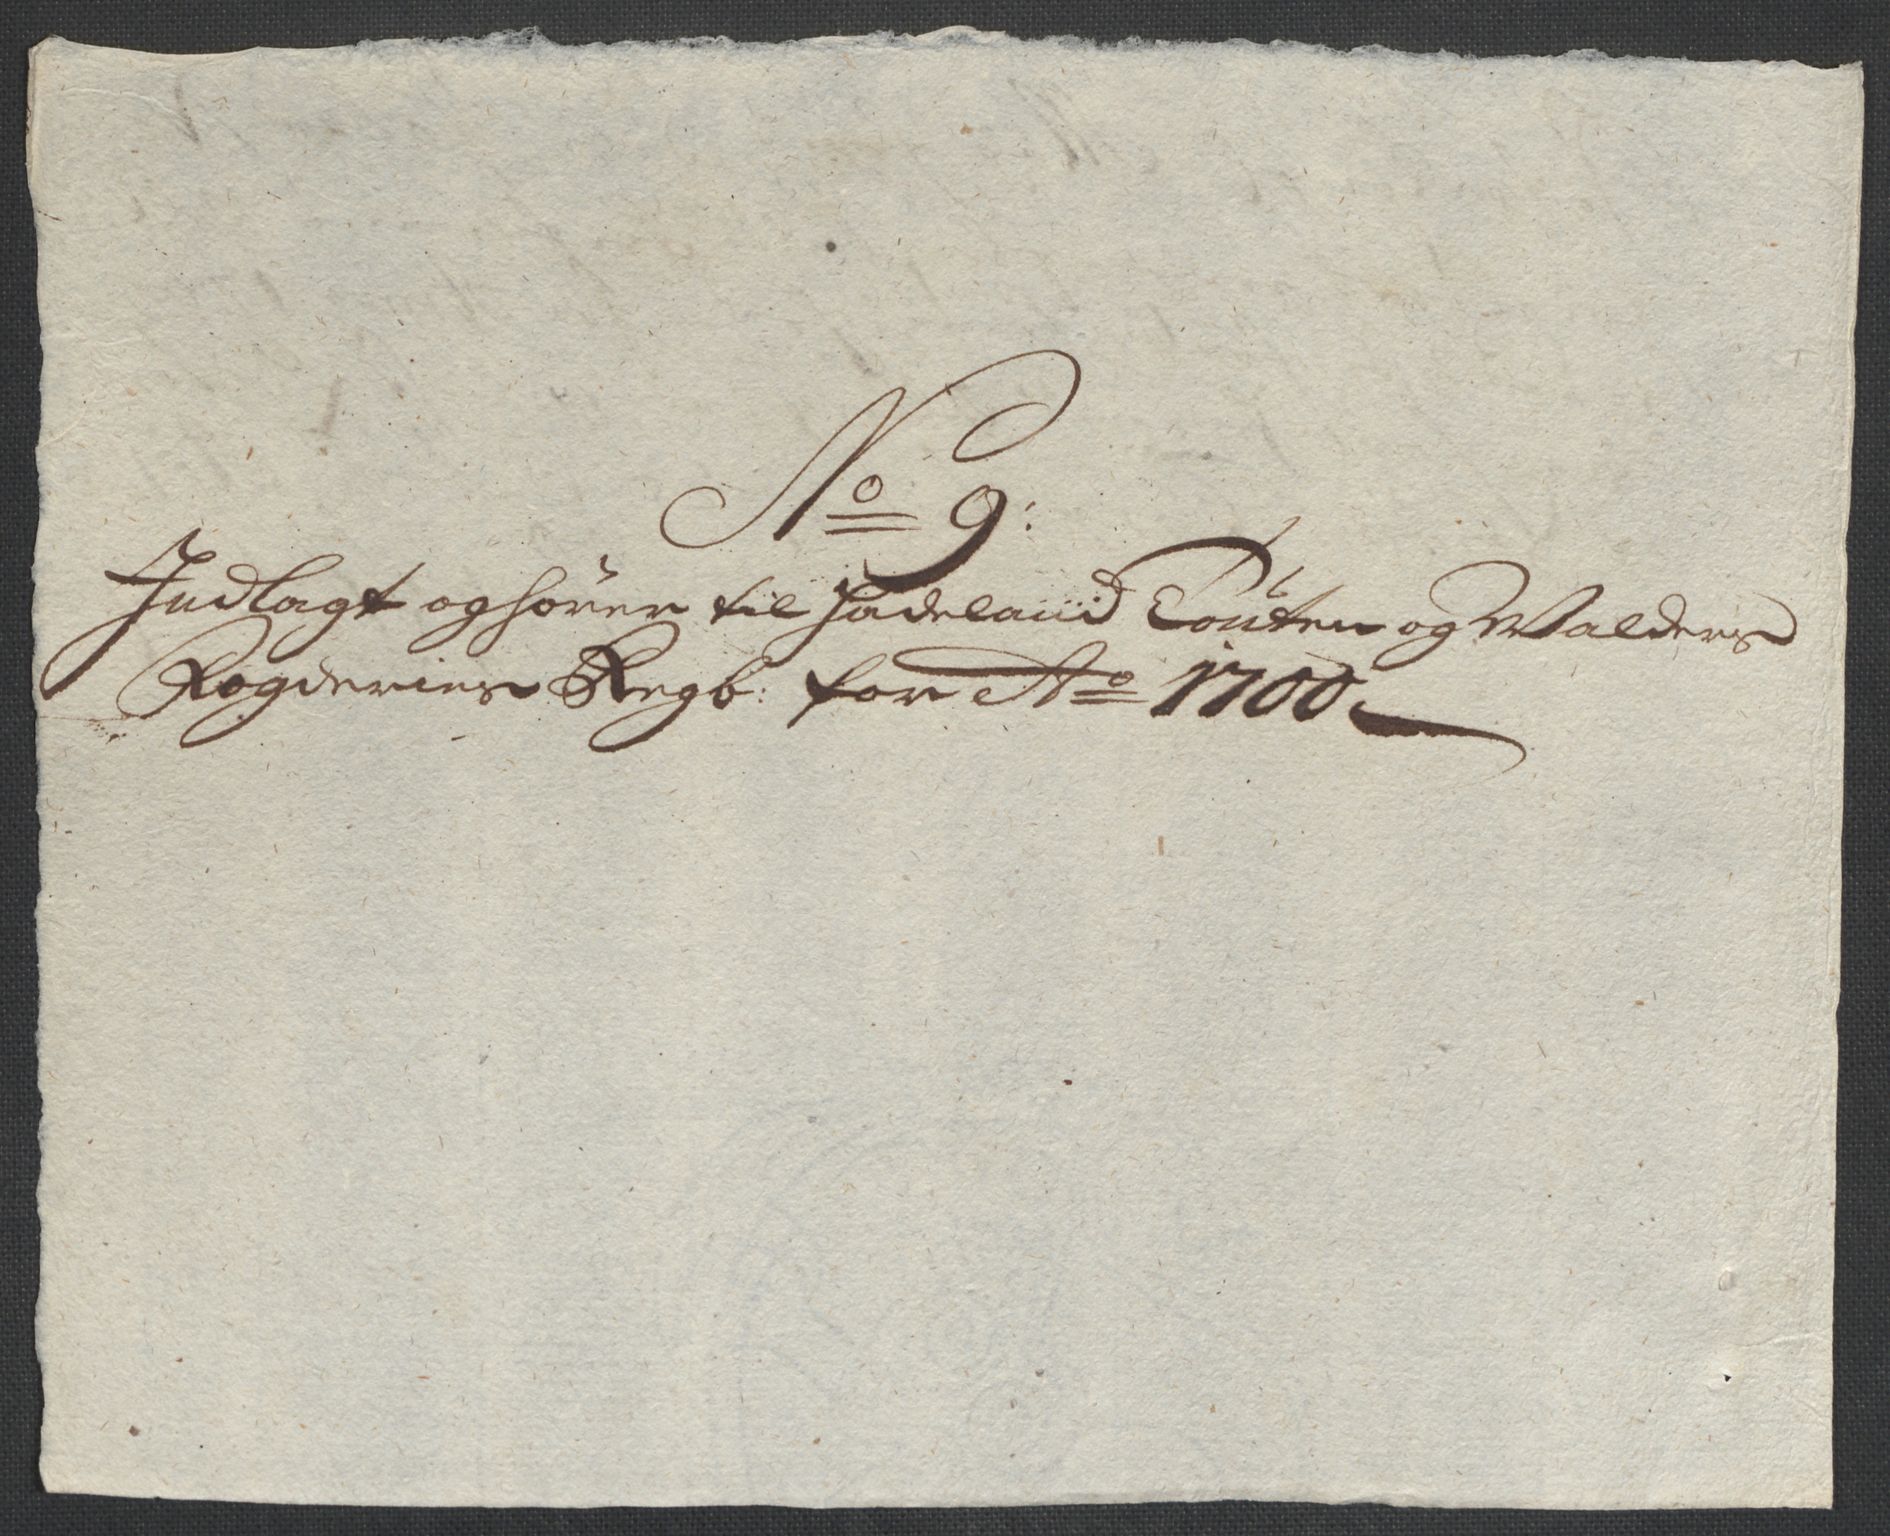 No 9:
Indlagt og hörer til Hadeland Toten og Walders
Fogderies Regb: for Ao 1700